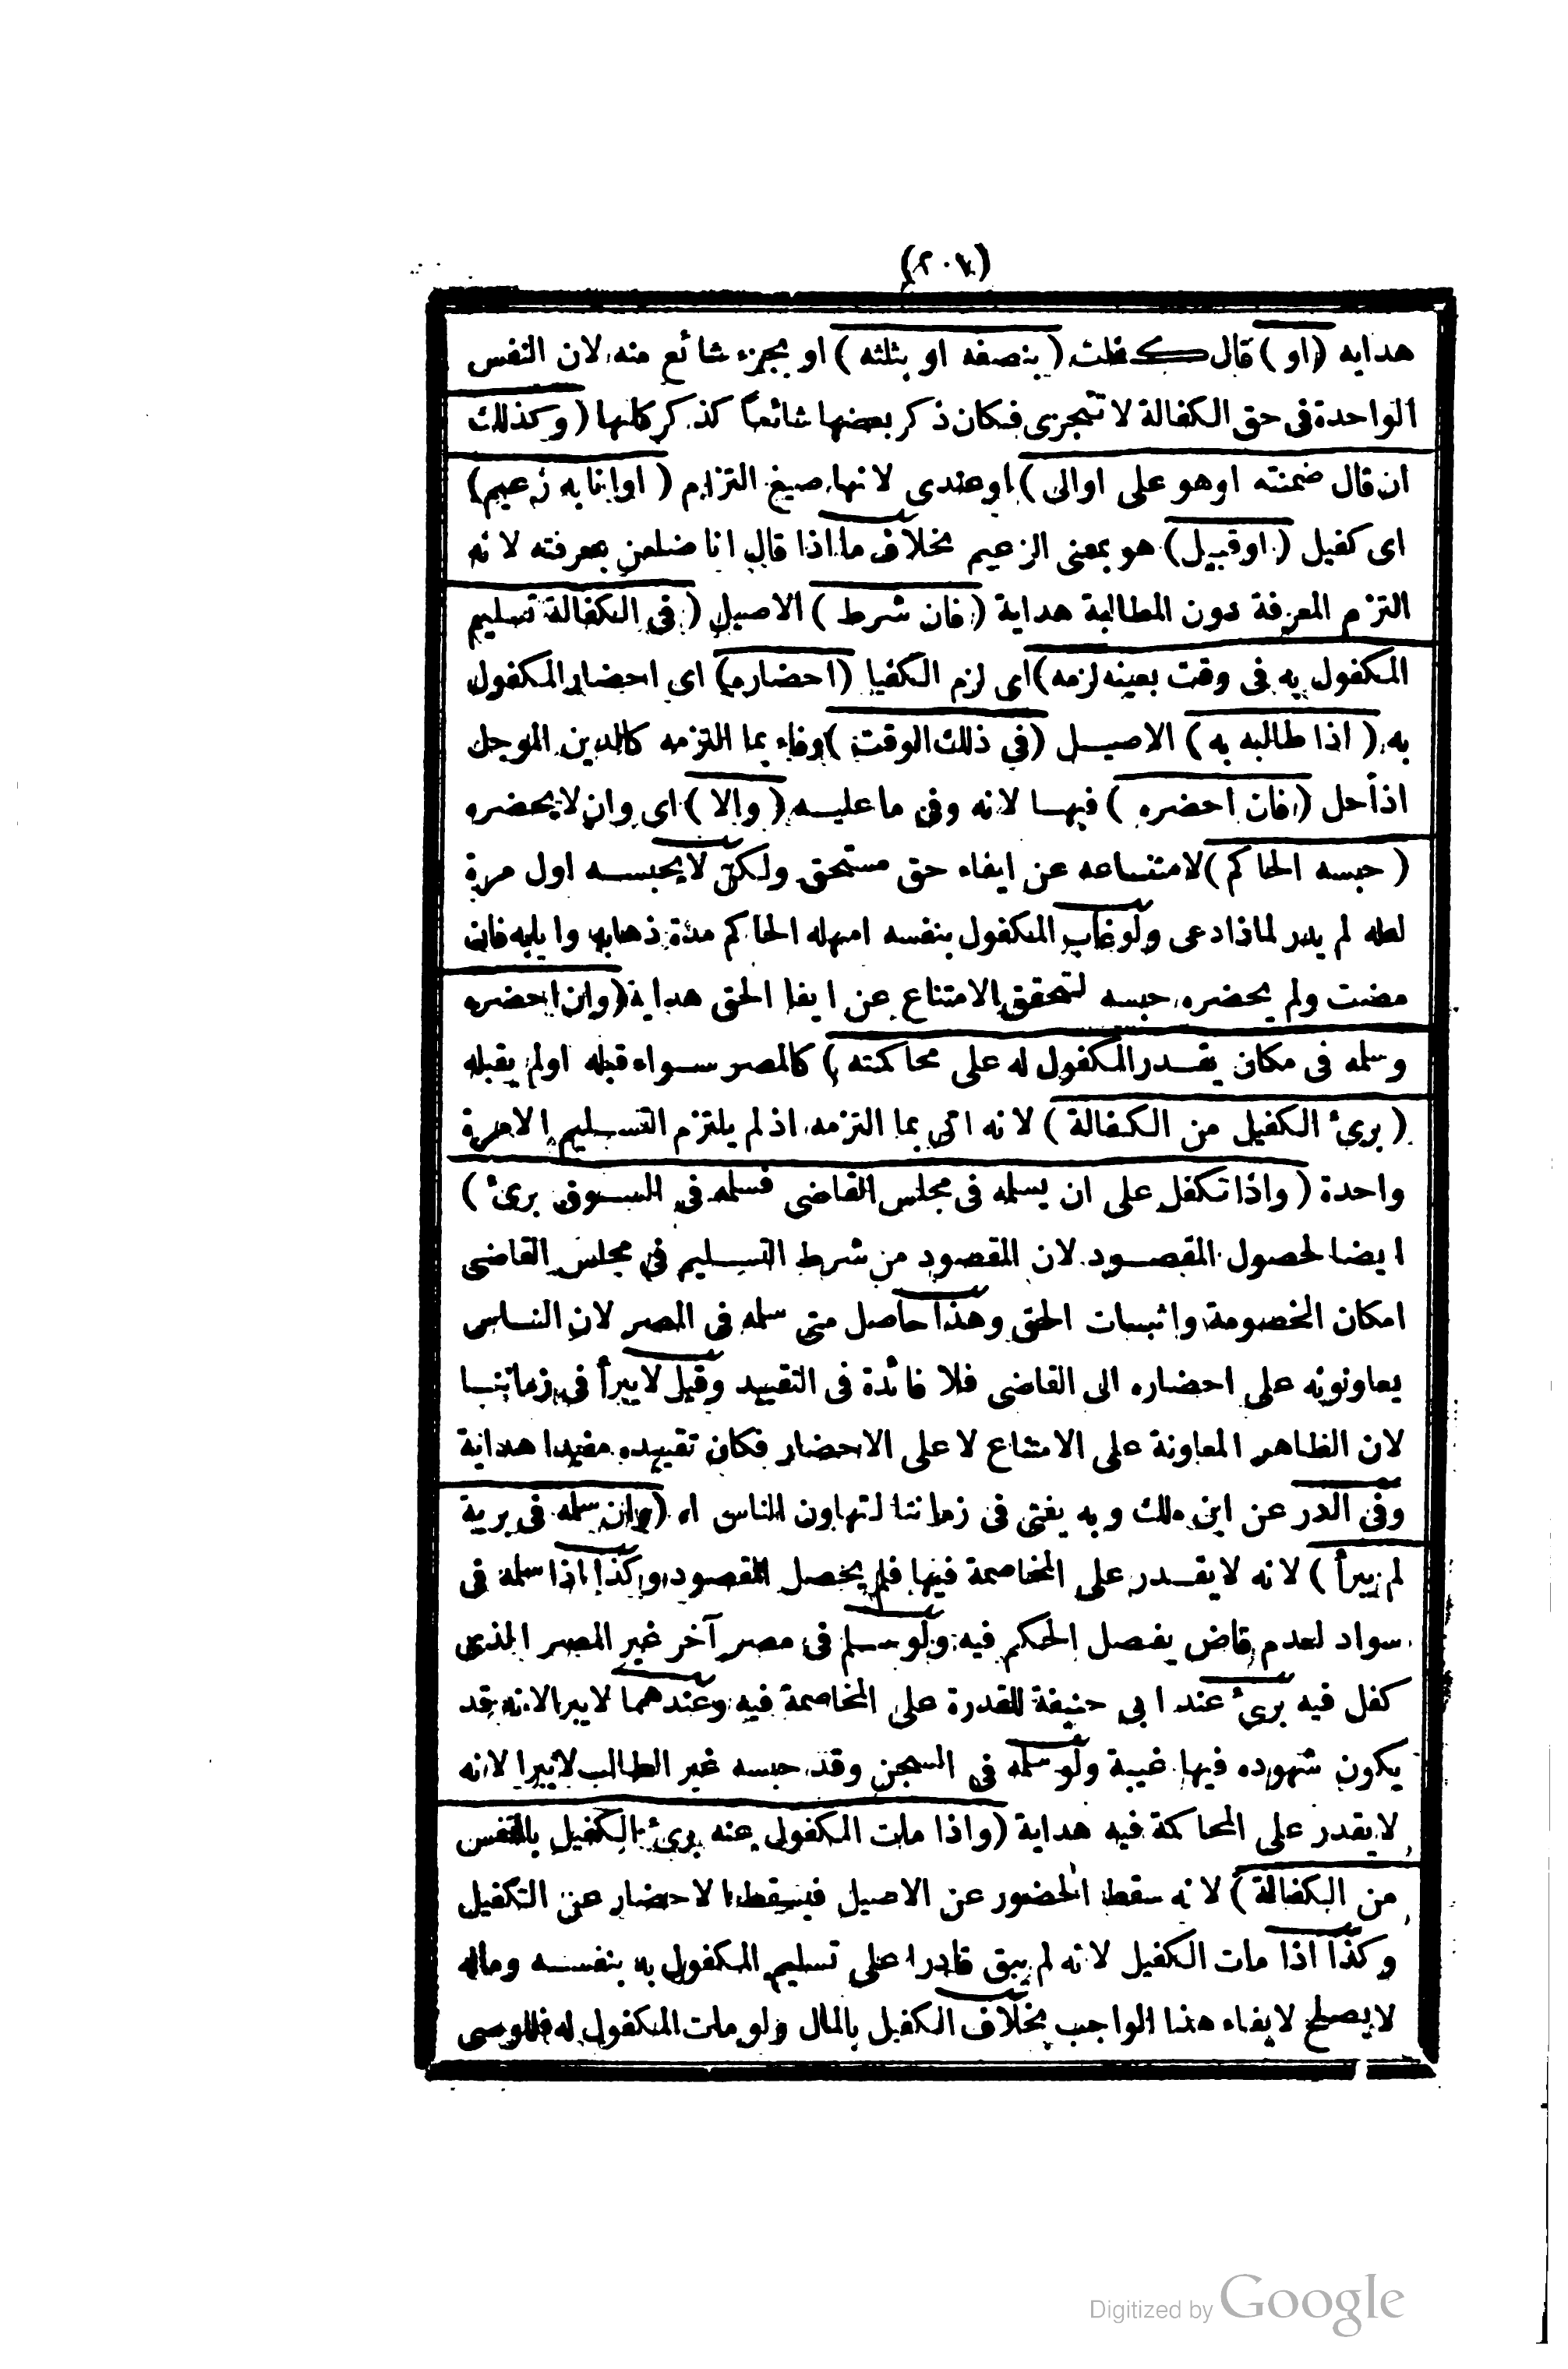 (٢٠٧)
هدايه (او) قال كفلت (بنصفه او بثلثه) او بجزء شائع منه لان النفس
الواحدة فى حق الكفالة لا تتجزى فكان ذكر بعضها شائعا كذكر كلها (وكذلك
ان قال ضمنته اوهو على اوالى) اوعندى لانها صيغ التزام (اوانا به زعيم)
اى كفيل (اوقبيل) هو بمعنى الزعيم بخلاف ما اذا قال انا ضامن بمعرفته لانه
التزم المعرفة دون المطالبة هداية (فان شرط) الاصيل (فى الكفالة تسليم
المكفول به فى وقت بعينه لزمه) اى لزم الكفيل (احضاره) اى احضار المكفول
به (اذا طالبه به) الاصيل (فى ذلك الوقت) وفاء بما التزمه كالدين الموجل
اذا حل (فان احضره) فبها لانه وفى ما عليه (والا) اى وان لا يحضره
(حبسه الحاكم) لامتناعه عن ايفاء حق مستحق ولكن لا يحبسه اول مرة
لعله لم يدر لماذا دعى ولو غاب المكفول بنفسه امهله الحاكم مدة ذهابه وايابه فان
مضت ولم يحضره حبسه لتحقق الامتناع عن ايفا الحق هداية (وان احضره
وسلمه فى مكان يقدر المكفول له على محاكمته) كالمصر سواء قبله اولم يقبله
(برئ الكفيل من الكفالة) لانه اتى بما التزمه اذ لم يلتزم التسليم الامرة
واحدة (واذا تكفل على ان يسلمه فى مجلس القاضى فسلمه فى السوق برئ)
ايضا لحصول المقصود لان المقصود من شرط التسليم فى مجلس القاضى
امكان الخصومة واثبات الحق وهذا حاصل متى سلمه فى المصر لان الناس
يعاونونه على احضاره الى القاضى فلا فائدة فى التقييد وقيل لا يبرأ فى زماننا
لان الظاهر المعاونة على الامتناع لا على الاحضار فكان تقييده مفيدا هداية
وفى الدر عن ابن ملك وبه يفتى فى زماننا لتهاون الناس اه (وان سلمه فى برية
لم يبرأ) لانه لا يقدر على المخاصمة فيها فلم يحصل المقصود وكذا اذا سلمه فى
سواد لعدم قاض يفصل الحكم فيه ولو سلم فى مصر آخر غير المصر الذى
كفل فيه برئ عند ابى حنيفة للقدرة على المخاصمة فيه وعندهما لا يبرا لانه قد
يكون شهوده فيها غيبة ولو سلمه فى السجن وقد حبسه غير الطالب لا يبرا لانه
لا يقدر على المحاكمة فيه هداية (واذا مات المكفول عنه برئ الكفيل بالنفس
من الكفالة) لانه سقط الحضور عن الاصيل فيسقط الاحضار عن التكفيل
وكذا اذا مات الكفيل لانه لم يبق قادرا على تسليم المكفول به بنفسه وماله
لا يصلح لايفاء هذا الواجب بخلاف الكفيل بالمال ولو مات المكفول له فللوصى
Digitized by Google